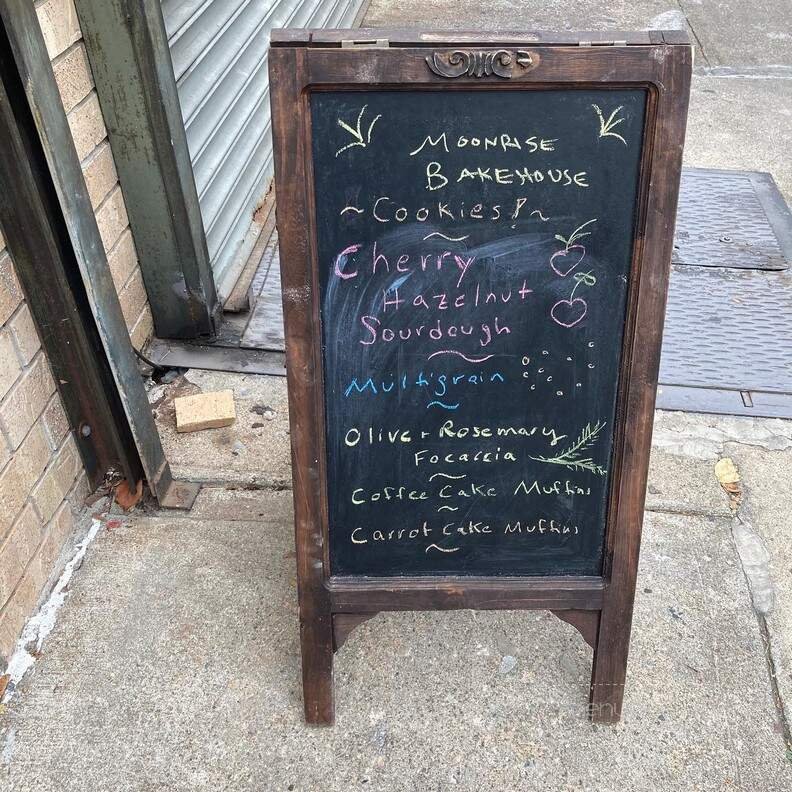 MOONRISE
BAKEHOUSE
~Cookies!~
Cherry
Hazelnut
Sourdough
Multigrain
Olive + Rosemary
Focaccia
Coffee Cake Muffins
Carrot Cake Muffins